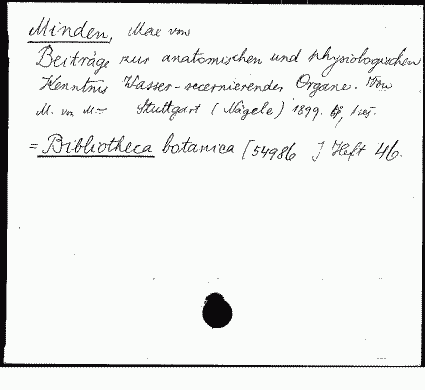 Minden, Max von
Beiträge zur anatomischen und physiologischen
Kenntnis Wasser-secernierender Organe. Von
M. von M. Stuttgart (Nägele) 1899.
= Bibliotheca botanica [54986 ] Heft 46.